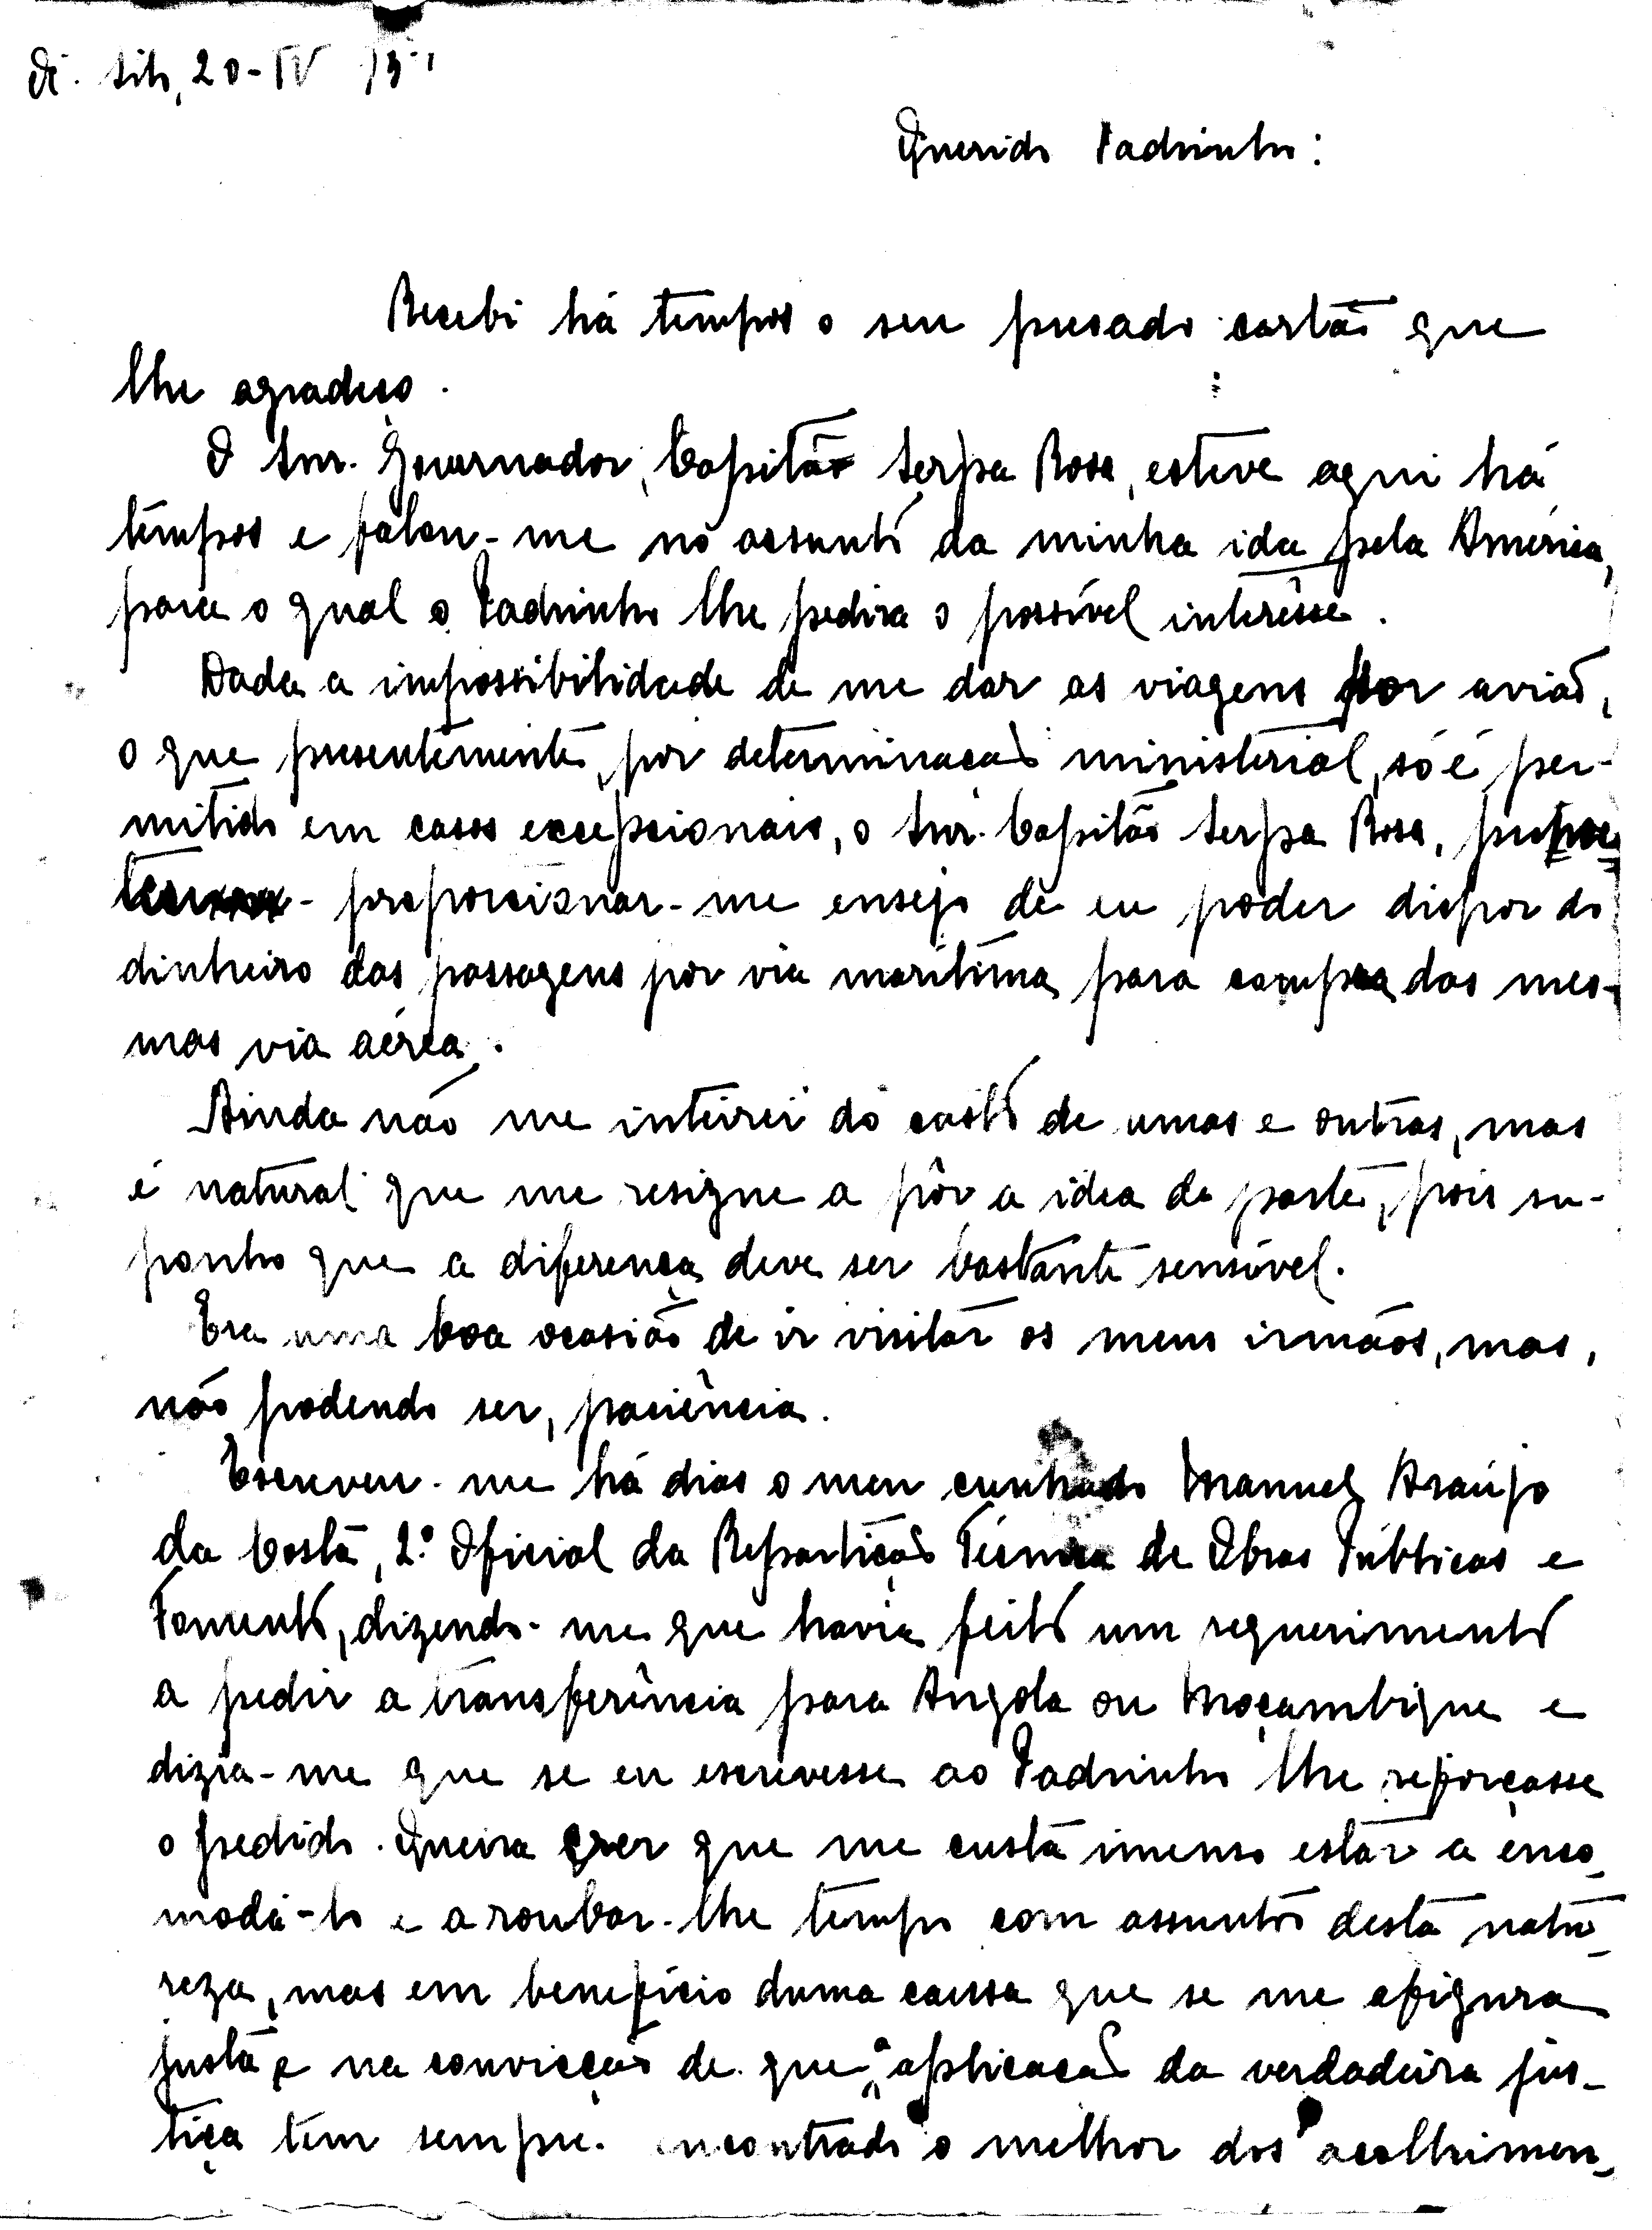 Di. Sito, 20-IV
Querido Padrinho:
Recebi há tempos o seu presado cartão que
lhe agradeço.
O Snr. Governador, Capitão Serpa Rosa, esteve aqui há
tempos e falou-me no assunto da minha ida pela América,
para o qual o Padrinho lhe pedira o possível interêsse.
Dada a impossibilidade de me dar as viagens por avião,
o que presentemente, por determinação ministerial, só é per-
mitido em casos excepcionais, o Snr. Capitão Serpa Rosa,
proporcionar-me ensejo de eu poder dispor do
dinheiro das passagens por via marítima para compra das mes-
mas via aérea.
Ainda não me inteirei do custo de umas e outras, mas
é natural que me resigne a pôr a idea de parte, pois su-
ponho que a diferença deve ser bastante sensível.
Era uma boa ocasião de ir visitar os meus irmãos, mas,
não podendo ser, paciência.
Escreveu-me há dias o meu cunhado Manuel Araújo
da Costa, 2.º Oficial da Repartição Técnica de Obras Públicas e
Fomento, dizendo-me que havia feito um requerimento
a pedir a transferência para Angola ou Moçambique e
dizia-me que se eu escrevesse ao Padrinho lhe reforçasse
o pedido. Queira crer que me custa imenso estar a inco-
modá-lo e a roubar-lhe tempo com assuntos desta natu-
reza, mas em benefício duma causa que se me afigura
justa e na convicção de que a aplicação da verdadeira jus-
tiça tem sempre encontrado o melhor dos acolhimen-